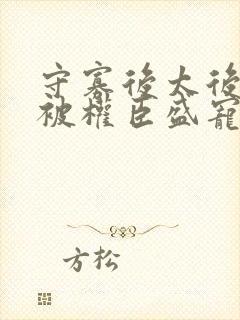 守寡後太後
被權臣盛寵
方松